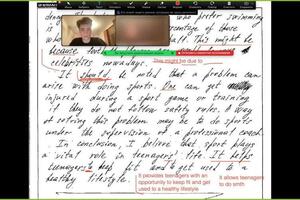 who prefer swimming
is percentage of those
This might be
because
This might be due to
celebrities nowadays.
It should be noted that a problem can
arise with doing sports. One can get
injured during a sport game or training
if they do not follow safety rules. A way
of solving this problem may be to do sports
under the supervision of a professional coach.
In conclusion, I believe that sport plays
a vital role in teenagers' life. It helps
teenagers to keep fit and get used to a
healthy lifestyle.
It provides teenagers with an
opportunity to keep fit and get
used to a healthy lifestyle
It allows teenagers
to do smth